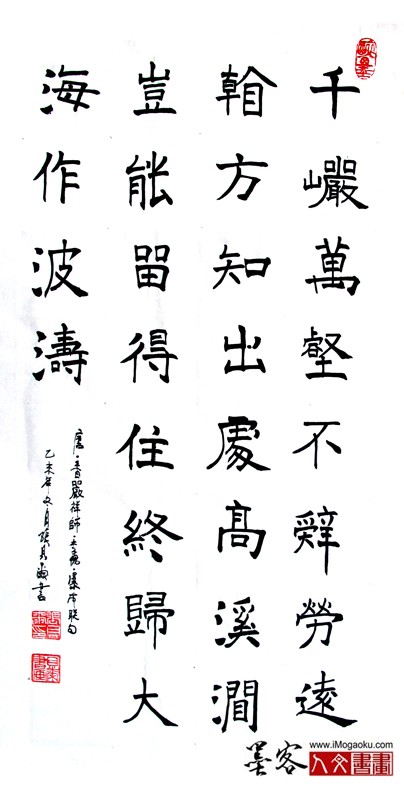 千巗萬壑不辭勞遠
看方知出處高溪澗
豈能留得住終歸大
海作波濤
唐·香嚴禪師·瀑布联句
乙未年月書
墨客
www.iMogaoku.com
人文書畫